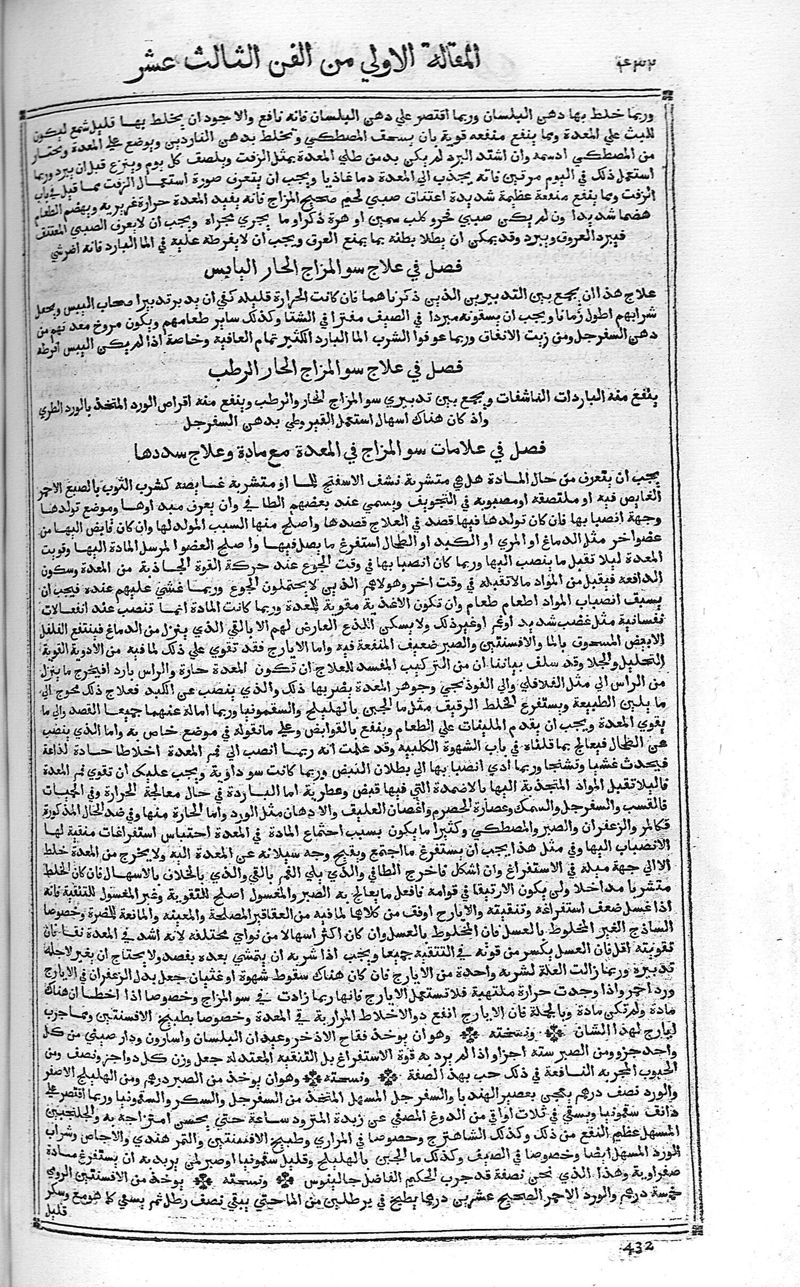 المقالة الاولي من الفن الثالث عشر
٤٣٢
وربما خلط بها دهن البلسان وربما اقتصر علي دهن البلسان فانه نافع والاجود ان يخلط بها قليل شمع ليكون
للبث علي المعدة ومما ينفع منفعه قوية بان يسحف المصطكي ويخلط بدهن الناردين ويوضع علي المعدة ويختار
من المصطكي ادسمه وان اشتد البرد لم يكن بد من طلي المعدة بمثل الزفت ويلصف كل يوم وينزع قبل ان يبرد وربما
استعمل ذلك في اليوم مرتين فانه يجذب الي المعدة دما غاذيا ويجب ان يتعرف صورة استعمال الزفت مما قيل في باب
الزفت ومما ينفع منفعة عظيمة شديدة اعتناق صبي لحيم صحيح المزاج فانه يفيد المعدة حرارة غريزيه ويهضم الطعام
هضما شديدا ون لم يكن صبي فجرو كلب سمين او هرة ذكر او ما يجري مجراه ويجب ان لا يعرق الصبي المعتنف
فيبرد العروق ويبرد وقد يمكن ان يطلا بطنه بما يمنع العرق ويجب ان لا يفرطه علية في الما البارد فانه اضر شي
فصل في علاج سو المزاج الحار اليابس
علاج هذا ان يجمع بين التدبيرين الذين ذكرناهما فان كانت الحرارة قليله كفي ان يدبر تدبيرا صحاب اليبس ويجعل
شرابهم اطول زمانا ويجب ان يسقونه مبردا في الصيف مفترا في الشتا وكذلك ساير طعامهم ويكون مروخ معدتهم من
دهن السفرجل ومن زيت الانفاق وربما عوفوا الشرب الما البارد الكثير تمام العافية وخاصة اذا لم يكن اليبس افرط
فصل في علاج سو المزاج الحار الرطب
ينفع منه الباردات الناشفات ويجمع بين تدبيري سو المزاج الحار والرطب وينفع منه اقراص الورد المتخذ بالورد الطري
واذ كان هناك اسهال استعمل القيروطي بدهن السفرجل
فصل في علامات سو المزاج في المعدة مع مادة وعلاج سددها
يجب ان يتعرف من حال المادة هل هي متشربة نشف الاسفنج للما او متشربة غايصه كشرب الثوب بالصبغ الاحمر
الغايص فيه او ملتصقة او مصبوبه في التجويف ويسمي عند بعضهم الطافي وان يعرف مبداوها وموضع تولدها
وجهة انصبابها فان كان تولدها فيها قصد في العلاج قصدها واصلح منها السبب المولد لها وان كان فايض اليها من
عضو اخر مثل الدماغ او المري او الكبد او الطحال استفرغ ما يصل فيها واصلح العضو المرسل المادة اليها وقويت
المعدة ليلا تقبل ما ينصب اليها وربما كان انصبابها في وقت الجوع عند حركة القوة الجاذبة من المعدة وسكون
الدافعه فيقبل من المواد ما لا تقبله في وقت اخر وهولاهم الذين لا يحتملون الجوع وربما غشي عليهم عنده فيجب ان
يسبق انصباب المواد اطعام طعام وان تكون الاغذية مقوية للمعدة وربما كانت المادة انما تنصب عند انفعالات
نفسانية مثل غضب شديد او غم او غير ذلك ولا يسكن اللذع العارض لهم الا بالقي الذي ينزل من الدماغ فينتفع الفلفل
الابيض المسحوق بالما والافسنتين والصبر ضعيف المنفعة فيه واما الايارج فقد تقوي علي ذلك لما فيه من الادوية القوية
التحليل والجلا وقد سلف بياننا ان من التركيب المفسد للعلاج ان تكون المعدة حارة والراس بارد افيخرج ما ينزل
من الراس الي مثل الفلافلي والي الفوذنجي وجوهر المعدة يضربها ذلك والذي ينصب عن الكبد فعلاج ذلك محوج الي
ما يلين الطبيعة ويستفرغ الخلط الرقيف مثل ما الجبن بالهليلج والسقمونيا وربما امالة عنهما جميعا القصد والي ما
يقوي المعدة ويجب ان يقدم المليفات علي الطعام وينفع بالقوابض وعلي ما نقوله في موضع خاص به واما الذي ينصب
عن الطحال فيعالج بما قلناه في باب الشهوة الكلبيه وقد علمت انه ربما انصب الي فم المعدة اخلاطا حادة لذاعة
فيحدث غشيا وتشنجا وربما ادي انصبابها الي بطلان النبض وربما كانت سوداوية ويجب عليك ان تقوي فم المعدة
فاليلا تقبل المواد المتجذبة اليها بالاضمدة التي فيها قبض وعطرية اما الباردة في حال معالجة الحرارة وفي الحميات
فالقسب والسفرجل والسمك وعصارة الحصرم واغصان العليق والادهان مثل الورد واما الحارة منها وفي ضد الحال المذكورة
فكالمر والزعفران والصبر والمصطكي وكثيرا ما يكون بسبب احتماع المادة في المعدة احتباس استفراغات منقية لها
الانصباب اليها وفي مثل هذا يجب ان يستفرغ ما اجتمع ويفتح وجه سيلانه عن المعدة اليه ولا يخرج من المعدة خلط
الا الي جهة ميله في الاستفراغ وان اشكل فاخرج الطافي والذي يلي الفم بالقي والذي بالخلاف بالاسهال فان كان الخلط
متشربا مداخلا ولن يكون الا رقيقا في قوامه فافعل ما يعالج به الصبر والمغسول اصلح للتقوية وغير المغسول للتنقية فانه
اذا غسل ضعف استفراغه وتنقيته والايارج اوفق من كلاهما لما فيه من العقاقير المصلحة والمعينه والمانعة للضرة وخصوصا
الساذج الغير المخلوط بالعسل فان المخلوط بالعسل وان كان اكثر اسهالا من نواحي مختلفه لانه اشد في المعدة نقا فان
تقويته اقل فان العسل يكسر من قوته في التنقية جميعا ويجب اذا شربه ان يتمشي بعده بقصد ولا يحتاج ان يغير لاجله
تدبيره وربما زالت العلة لشربه واحدة من الايارج فان كان هناك سقوط شهوة او غثيان جعل بدل الزعفران في الايارج
ورد احمر واذا وجدت حرارة ملتهبة فلا تستعمل الايارج فانها ربما زادت في سو المزاج وخصوصا اذا اخطأ ان هناك
مادة ولم تكن مادة وبالجملة فان الايارج انفع دوا لاخلاط المرارية في المعدة وخصوصا بطبيخ الافسنتين ومما جرب
ايارج لهذا الشان ونسخته وهو ان يوخذ فقاح الاذخر وعيدان البلسان واسارون ودار صيني من كل
واحد جزو ومن الصبر سته اجزا واذا لم يرد به قوة الاستفراغ بل التنقيه المعتدله جعل وزن كل دوا جز ونصف ومن
الحبوب المجربه النافعة في ذلك حب بهذه الصفة ونسخته وهو ان يوخذ من الصبر درهم ومن الهليلج الاصفر
والورد نصف درهم يعجن بعصير الهندبا والسفرجل المسهل المتخذ من السفرجل والسكر والسقمونيا وربما اقتصر علي
دانف سقمونيا ويسقي في ثلاث اواقي من الدوغ المصفي عن زبدة المتزود ساعة حتي يحسن امتزاجه به والجلنجبين
المسهل عظيم النفع من ذلك وكذلك الشاهترج وخصوصا في المراري وطبيخ الافسنتين والتمر هندي والاجاص وشراب
الورد المسهل ايضا وخصوصا في الصيف وكذلك ما الجبن بالهليلج وقليل سقمونيا او صبر لمن يريد به ان يستفرغ مادة
صفراوية وهذا الذي نحن نصفه قد جرب الحكيم الفاضل جالينوس ونسخته يوخذ من الافسنتين الرومي
خمسة درهم والورد الاحمر الصحيح عشرين درهما يطبخ في رطلين من الما حتي يبقي نصف رطل ثم يسقي كما هو مع وسكر
قليل
432